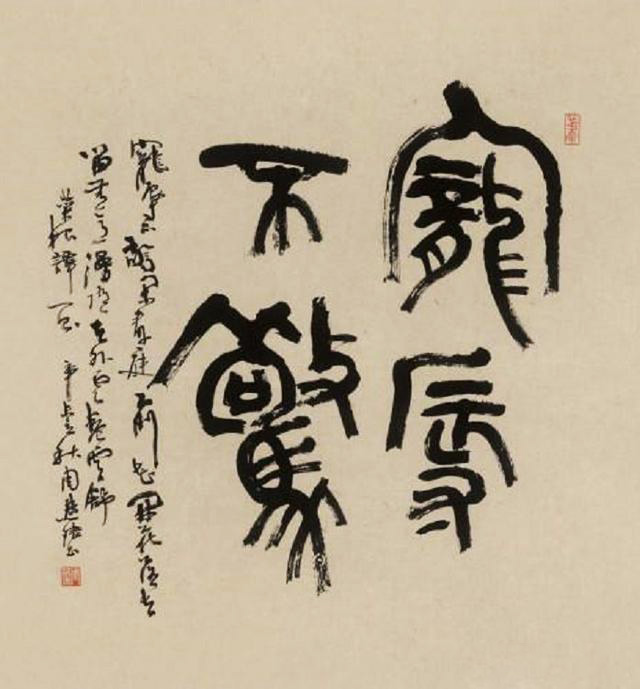 寵辱
不驚
寵辱不驚閑看庭前花開花落去
留無意漫隨天外雲捲雲舒
菜根譚 秋周